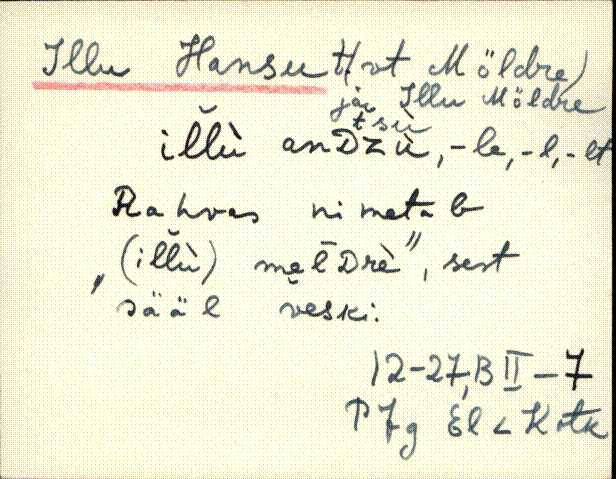 Illu Hansu t (vt Möldre)
ja Illu Möldre
tsù
il̆lù anDzù, -le, -l, -lt
Rahvas nimetab
„(il̆lù) mel̄Drè", sest
sääl veski.
12-27, B II - 7
Kotk